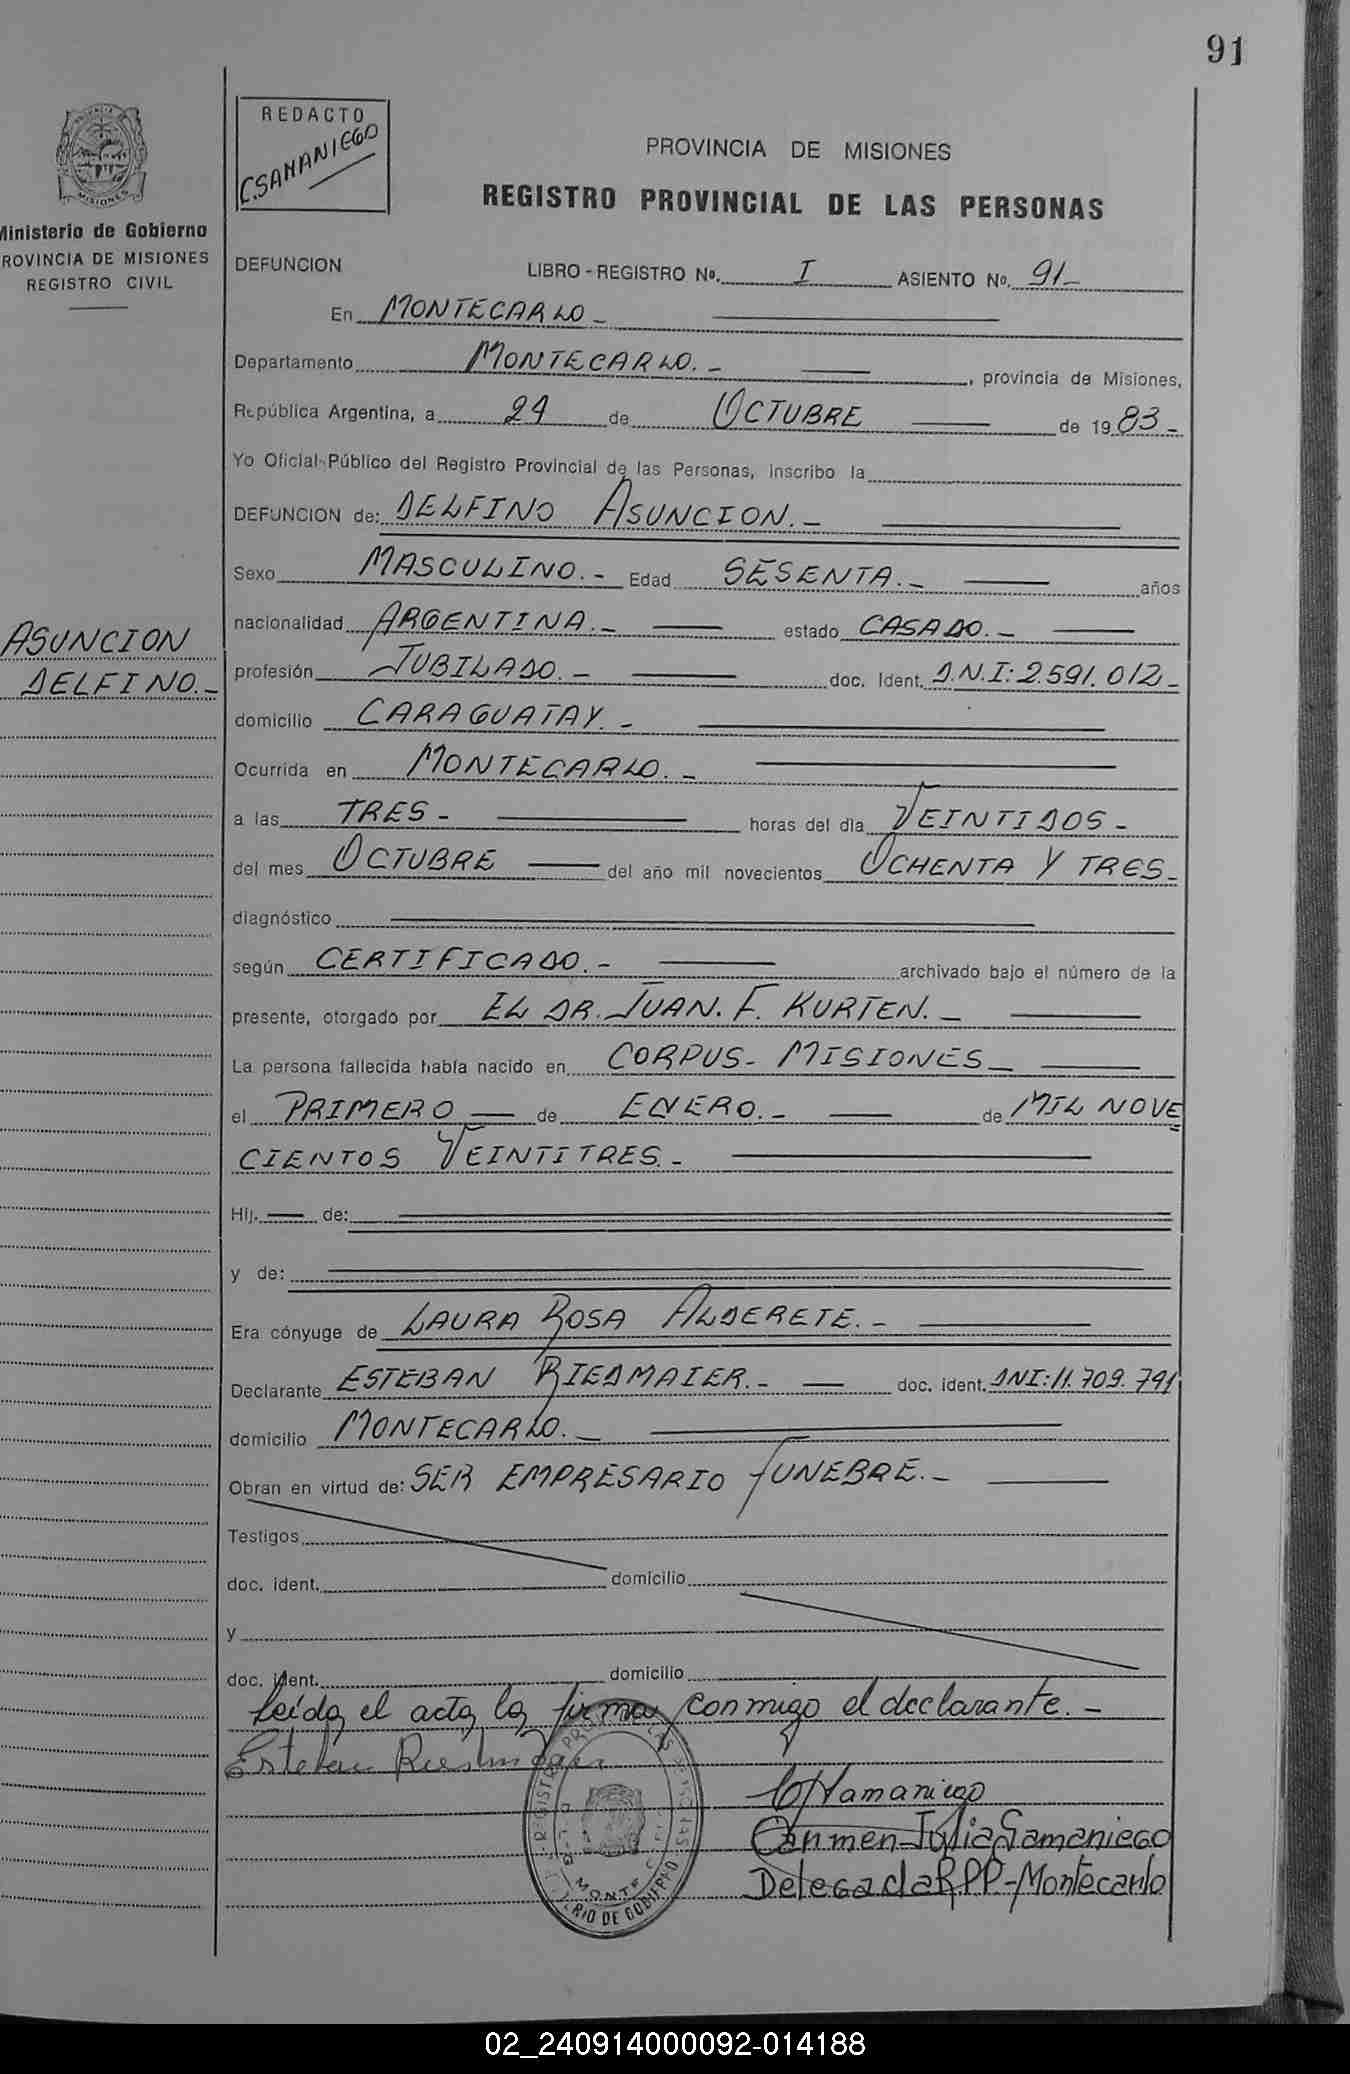 91
REDACTO
C.SAMANIEGO
PROVINCIA DE MISIONES
REGISTRO PROVINCIAL DE LAS PERSONAS
Ministerio de Gobierno
PROVINCIA DE MISIONES
REGISTRO CIVIL
DEFUNCION LIBRO - REGISTRO Nº. I ASIENTO Nº. 91-
En MONTECARLO -
Departamento MONTECARLO. - , provincia de Misiones,
República Argentina, a 24 de OCTUBRE de 1983 -
Yo Oficial Público del Registro Provincial de las Personas, inscribo la
DEFUNCION de: DELFINO ASUNCION. -
Sexo MASCULINO. - Edad SESENTA. - años
nacionalidad ARGENTINA. - estado CASADO. -
ASUNCION
DELFINO. -
profesión JUBILADO. - doc. Ident. D.N.I: 2.591.012 -
domicilio CARAGUATAY. -
Ocurrida en MONTECARLO. -
a las TRES - horas del día VEINTIDOS -
del mes OCTUBRE del año mil novecientos OCHENTA Y TRES -
diagnóstico
según CERTIFICADO. - archivado bajo el número de la
presente, otorgado por EL DR. JUAN. F. KURTEN. -
La persona fallecida había nacido en CORPUS - MISIONES -
el PRIMERO - de ENERO. - de MIL NOVE
CIENTOS VEINTITRES. -
Hij. de:
y de:
Era cónyuge de LAURA ROSA ALDERETE. -
Declarante ESTEBAN RIEDMAIER. - doc. ident. DNI: 11.709.791
domicilio MONTECARLO. -
Obran en virtud de: SER EMPRESARIO FUNEBRE. -
Testigos
doc. ident. domicilio
y
doc. ident. domicilio
Leida el acta la firma conmigo el declarante. -
Esteban
CJSamaniego
Carmen Julia Samaniego
Delegada R.P.P - Montecarlo
MONTE
RIO DE GOBIERNO
02_240914000092-014188